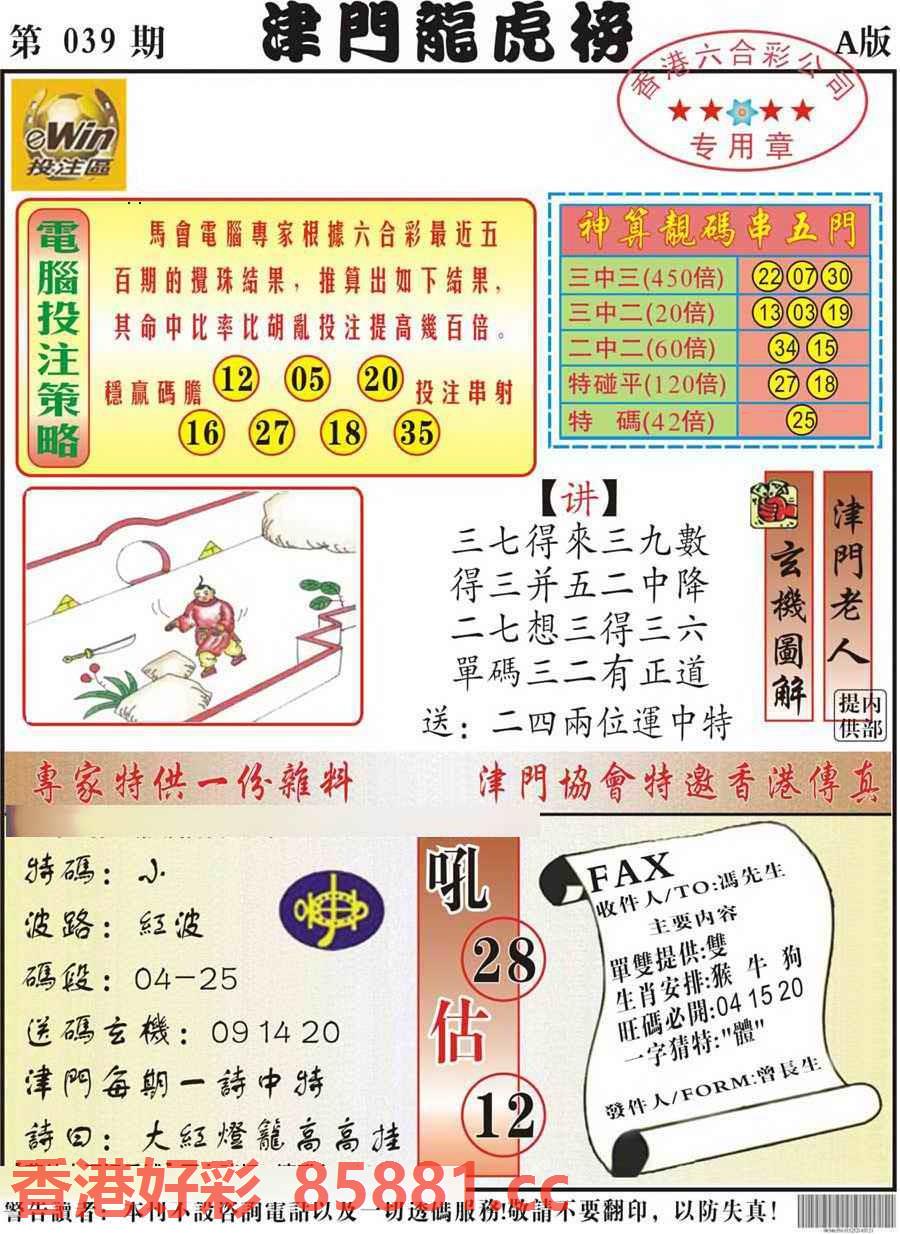 第 039 期
津門龍虎榜
A版
香港六合彩公司
专用章
eWin
投注區
電腦投注策略
馬會電腦專家根據六合彩最近五
百期的攪珠結果，推算出如下結果，
其命中比率比胡亂投注提高幾百倍。
穩贏碼膽 12 05 20 投注串射
16 27 18 35
神算靚碼串五門
三中三(450倍) 22 07 30
三中二(20倍) 13 03 19
二中二(60倍) 34 15
特碰平(120倍) 27 18
特 碼(42倍) 25
【讲】
三七得來三九數
得三并五二中降
二七想三得三六
單碼三二有正道
送：二四兩位運中特
玄機圖解
津門老人
内部提供
專家特供一份雜料
津門協會特邀香港傳真
特碼：小
波路：紅波
碼段：04-25
送碼玄機：09 14 20
津門每期一詩中特
詩曰：大紅燈籠高高挂
吼
28
估
12
FAX
收件人/TO:馮先生
主要内容
單雙提供:雙
生肖安排:猴 牛 狗
旺碼必開:04 15 20
一字猜特:"體"
發件人/FORM:曾長生
香港好彩 85881.cc
警告讀者：本刊不設咨詢電話以及一切透碼服務!敬請不要翻印，以防失真!